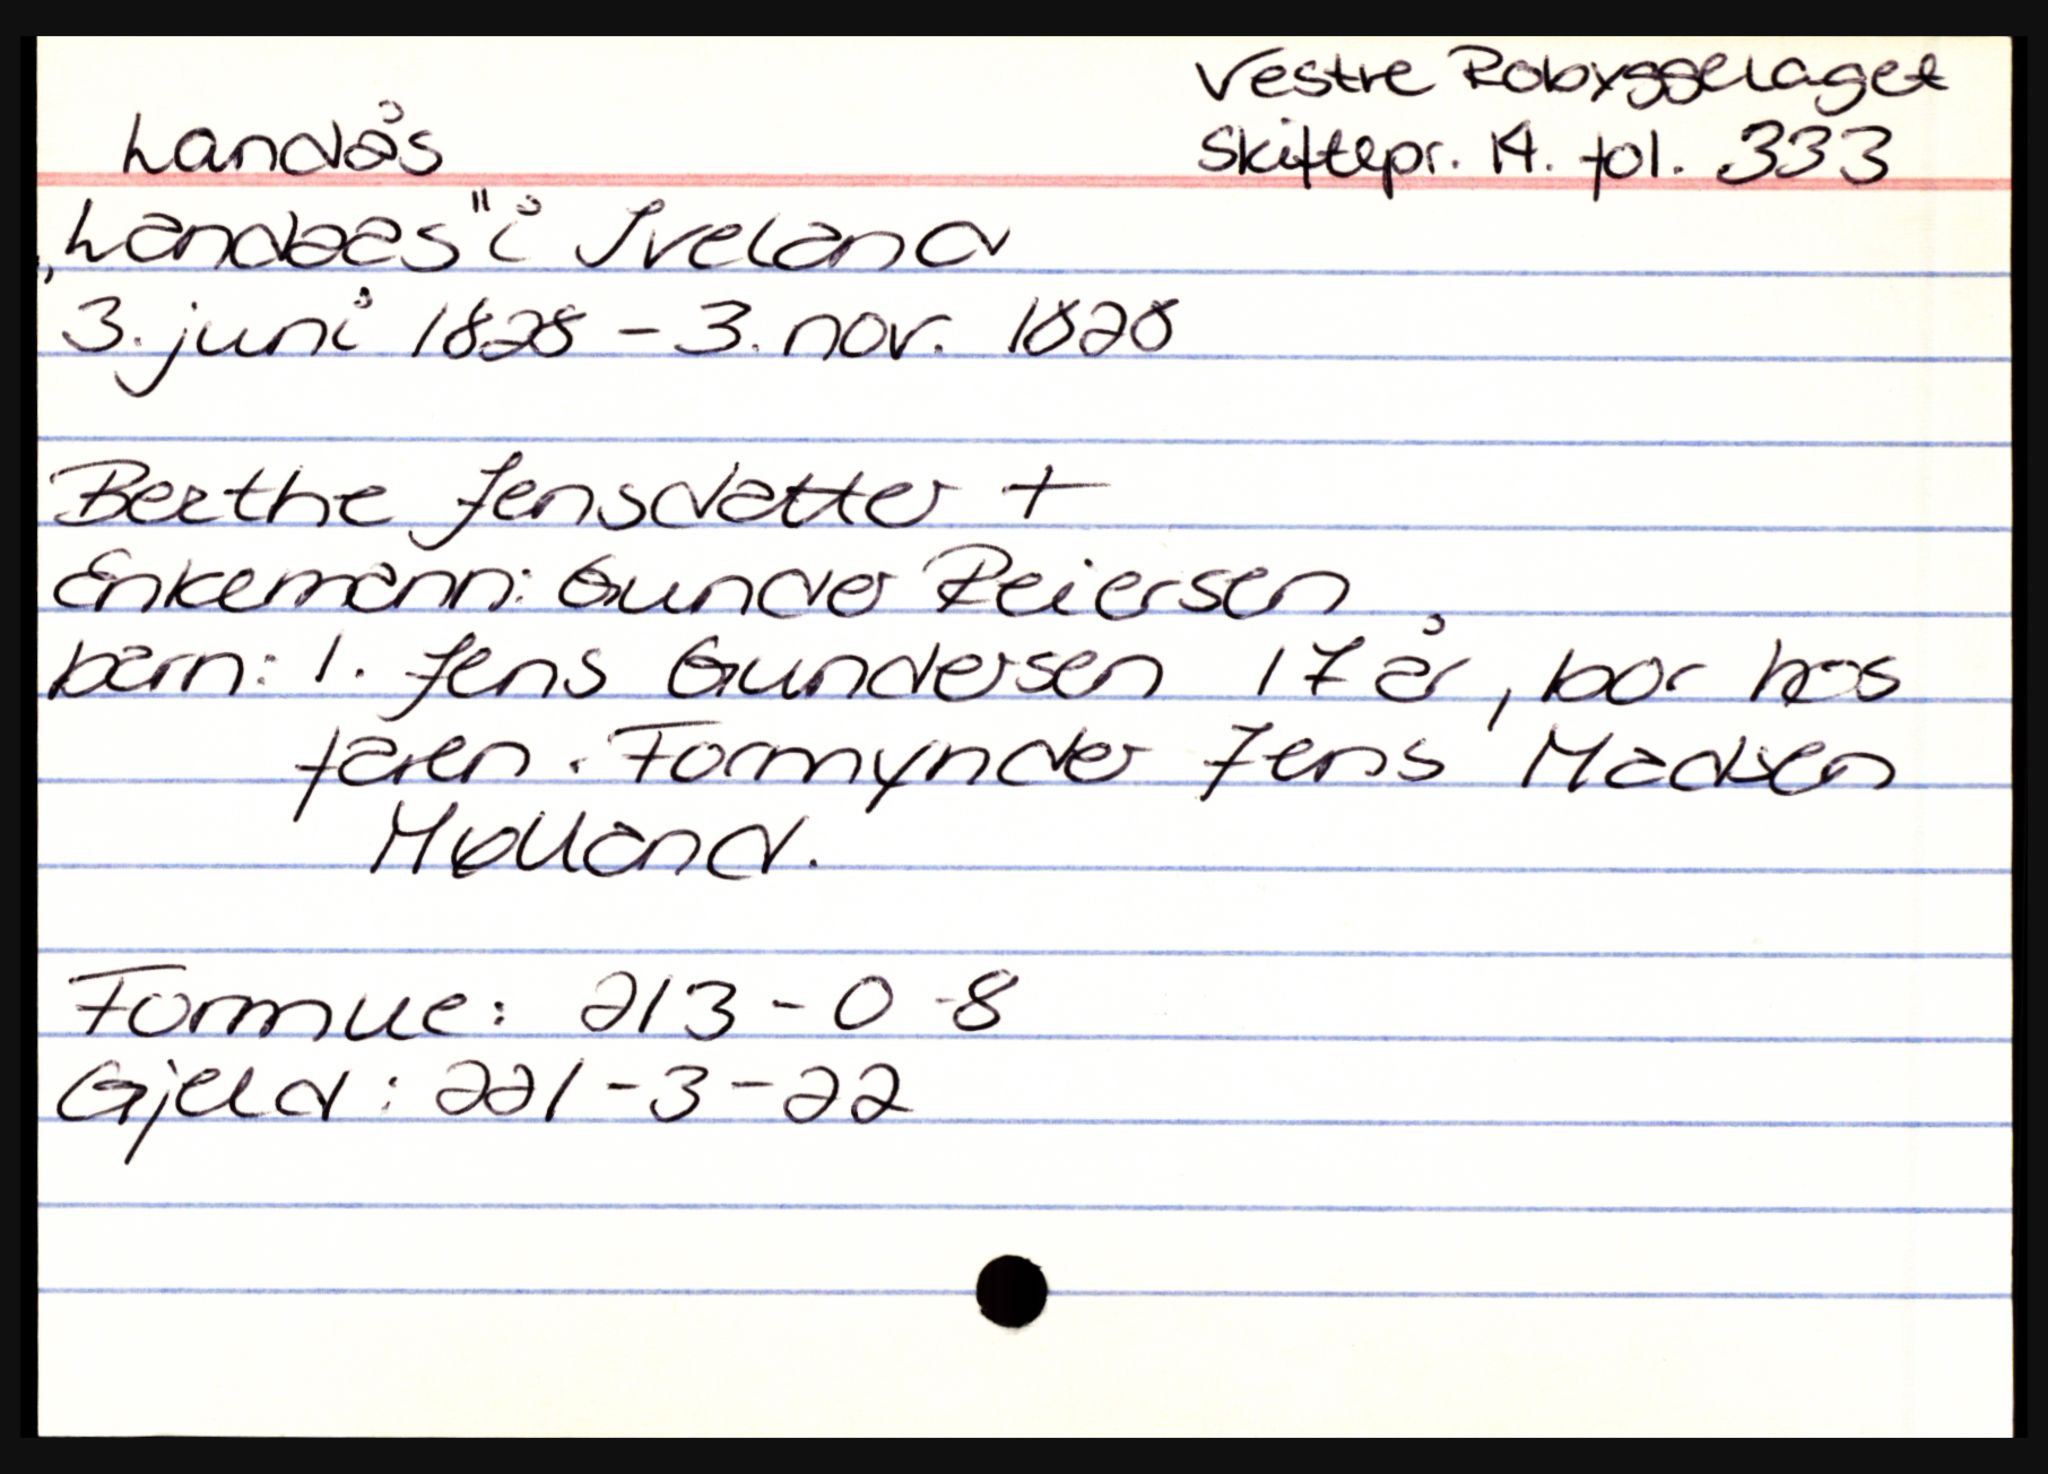 Vestre Robyggelaget
Landås Skiftepr. 14. fol. 333
„Landaas" i Iveland
3. juni 1828 - 3. nov. 1828
Berthe Jensdatter +
Enkemann: Gunder Reiersen
barn: 1. Jens Gundersen 17 år, bor hos
faren. Formynder Jens Madsen
Mølland.
Formue: 213 - 0 - 8
Gjeld: 221 - 3 - 22